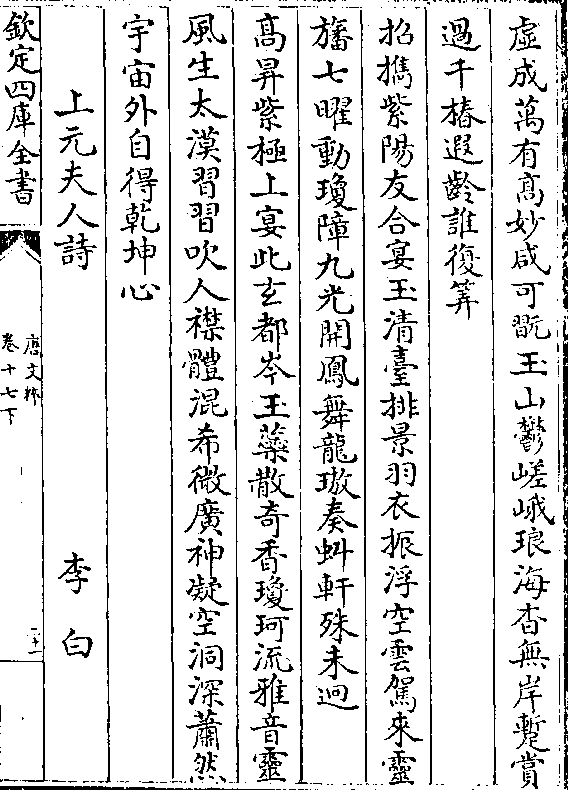 虛成萬有髙妙咸可翫玉山鬱嵯峨琅海杳無岸蹔賞
過千椿遐齡誰復筭
招擕紫陽友合宴玉清臺排景羽衣振浮空雲駕來靈
旛七曜動瓊障九光開鳳舞龍璈奏虯軒殊未迴
髙昇紫極上宴此玄都岑玉藥散奇香瓊珂流雅音靈
風生太漠習習吹人襟體混希微廣神凝空洞深蕭然
宇宙外自得乾坤心
上元夫人詩 李白
欽定四庫全書
唐文粹
卷十七下
二十一